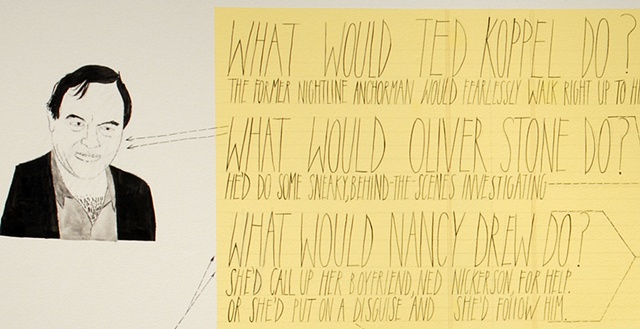 WHAT WOULD TED KOPPEL DO?
THE FORMER NIGHTLINE ANCHORMAN WOULD FEARLESSLY WALK RIGHT UP TO
WHAT WOULD OLIVER STONE DO??
HE'D DO SOME SNEAKY, BEHIND-THE-SCENES INVESTIGATING
WHAT WOULD NANCY DREW DO?
SHE'D CALL UP HER BOYFRIEND, NED NICKERSON, FOR HELP.
OR SHE'D PUT ON A DISGUISE AND SHE'D FOLLOW HIM.